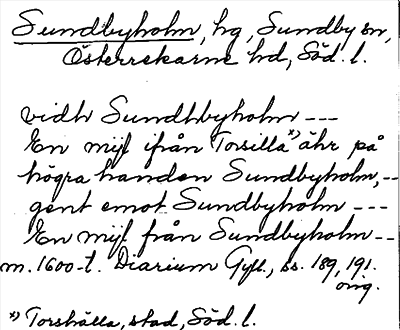 Sundbyholm, hg, Sundby sn,
Österrekarne hd, Söd. l.
vidh Sundhbyholm ---
En mijl ifrån Torsilla *) ähr på
högra handen Sundbyholm, --
gent emot Sundbyholm ---
En mijl från Sundbyholm --
m. 1600-t. Diarium Gyll., ss. 189, 191.
orig.
*) Torshälla, stad, Söd. l.